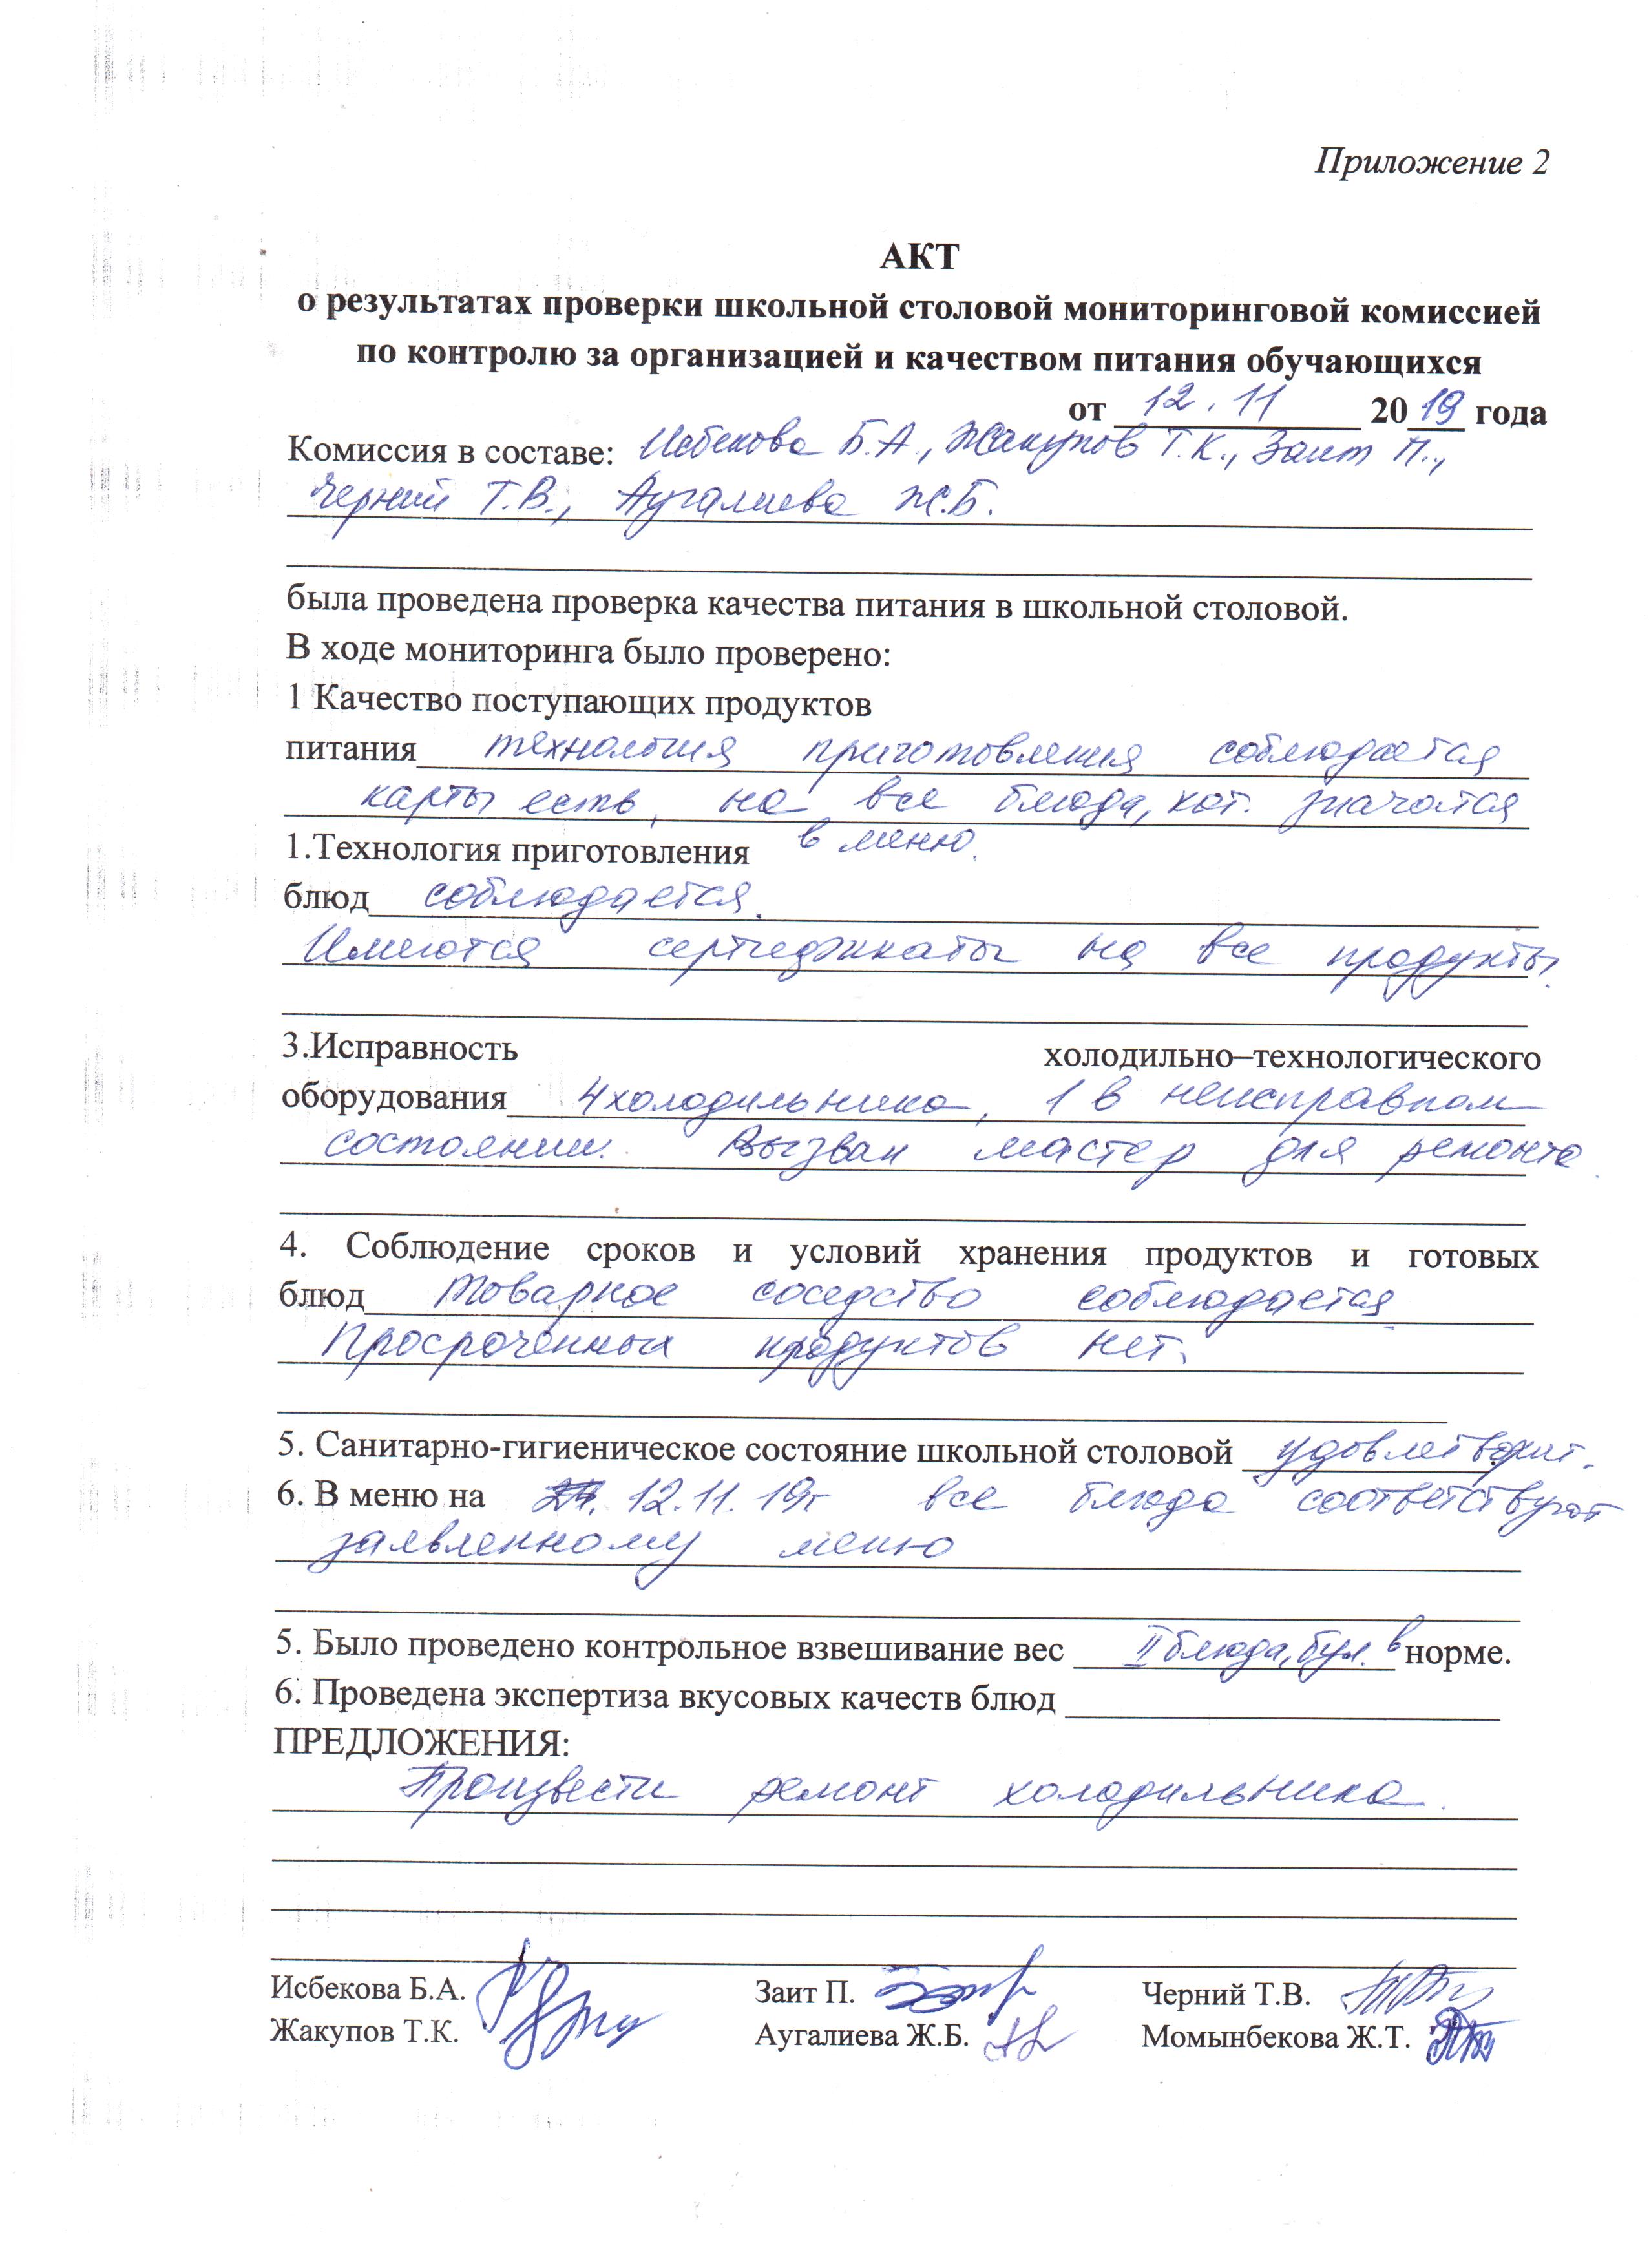 Приложение 2
АКТ
о результатах проверки школьной столовой мониторинговой комиссией
по контролю за организацией и качеством питания обучающихся
от 12.11 2019 года
Комиссия в составе: Исбекова Б.А., Жакупов Т.К., Заит П.,
Черний Т.В., Аугалиева Ж.Б.
была проведена проверка качества питания в школьной столовой.
В ходе мониторинга было проверено:
1 Качество поступающих продуктов
питания технология приготовления соблюдается
карты есть, на все блюда, кот. значатся
в меню.
1.Технология приготовления
блюд соблюдается.
Имеются сертификаты на все продукты.
3.Исправность холодильно–технологического
оборудования 4 холодильника, 1 в неисправном
состоянии. Вызван мастер для ремонта.
4. Соблюдение сроков и условий хранения продуктов и готовых
блюд товарное соседство соблюдается
Просроченных продуктов нет.
5. Санитарно-гигиеническое состояние школьной столовой удовлетворит.
6. В меню на 12.11.19г все блюда соответствуют
заявленному меню
5. Было проведено контрольное взвешивание вес II блюда, бул. в норме.
6. Проведена экспертиза вкусовых качеств блюд
ПРЕДЛОЖЕНИЯ:
Произвести ремонт холодильника.
Исбекова Б.А. Заит П. Черний Т.В.
Жакупов Т.К. Аугалиева Ж.Б. Момынбекова Ж.Т.